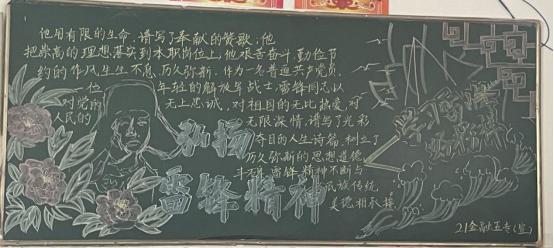 他用有限的生命,谱写了奉献的赞歌;他
把崇高的理想落实到本职岗位上,他艰苦奋斗,勤俭节
约的作风生生不息,历久弥新。作为一名普通共产党员,
一位 年轻的解放军战士,雷锋同志以
对党的 无上忠诚,对祖国的无比热爱,对
人民的 无限深情,谱写了光彩
夺目的人生诗篇,树立了
历久弥新的思想道德
丰碑,雷锋精神不断与
民族传统
美德相承接
弘扬
雷锋精神
学习雷锋
好榜样
21金融五专(宣)